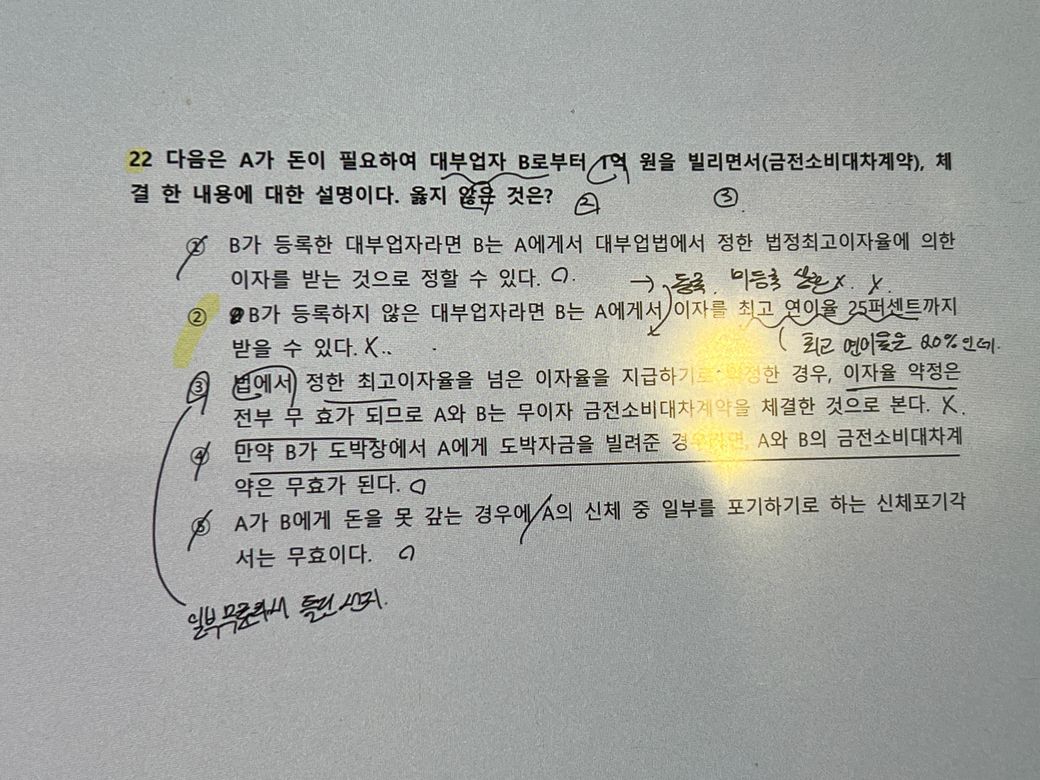 22 다음은 A가 돈이 필요하여 대부업자 B로부터 1억 원을 빌리면서(금전소비대차계약), 체
결 한 내용에 대한 설명이다. 옳지 않은 것은? ② ③.
① B가 등록한 대부업자라면 B는 A에게서 대부업법에서 정한 법정최고이자율에 의한
이자를 받는 것으로 정할 수 있다. O.
→ 등록. 미등록 상관 X. X.
② B가 등록하지 않은 대부업자라면 B는 A에게서 이자를 최고 연이율 25퍼센트까지
받을 수 있다. X..
( 최고 연이율은 20%인데.
③ 법에서 정한 최고이자율을 넘은 이자율을 지급하기로 약정한 경우, 이자율 약정은
전부 무 효가 되므로 A와 B는 무이자 금전소비대차계약을 체결한 것으로 본다. X.
④ 만약 B가 도박장에서 A에게 도박자금을 빌려준 경우라면, A와 B의 금전소비대차계
약은 무효가 된다. O
⑤ A가 B에게 돈을 못 갚는 경우에 A의 신체 중 일부를 포기하기로 하는 신체포기각
서는 무효이다. O
틀린 선지.